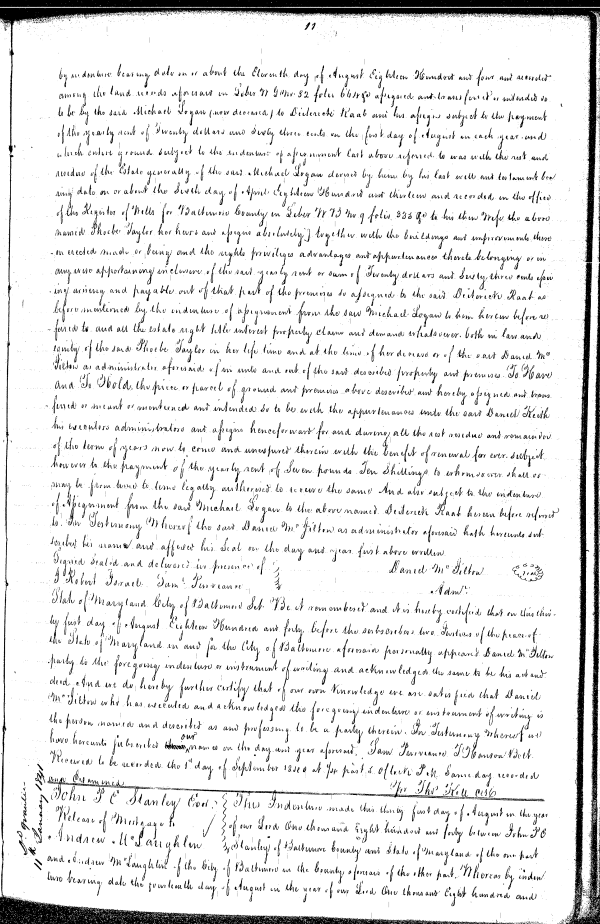 11
by indenture bearing date on or about the Eleventh day of August Eighteen Hundred and four and recorded
among the land records aforesaid in Liber W G No 82 folio &c assigned and transferred or intended so
to be by the said Michael Logan (now deceased) to Diederick Raab and his assigns subject to the payment
of the yearly rent of Twenty dollars and Sixty three cents on the first day of August in each year and
which entire ground subject to the indenture of assignment last above referred to was with the rest and
residue of the Estate generally of the said Michael Logan devised by him by his last will and testament bea
ring date on or about the Sixth day of April Eighteen Hundred and thirteen and recorded in the office
of the Register of Wills for Baltimore County in Liber W B No 9 folio 335 &c to his then Wife the above
named Phoebe Taylor her heirs and assigns absolutely) together with the buildings and improvements there
on erected made or being and the rights priviliges advantages and appurtenances thereto belonging or in
any wise appertaining inclusive of the said yearly rent or sum of Twenty dollars and Sixty three cents issu
ing arising and payable out of that part of the premises so assigned to the said Diederick Raab as
before mentioned by the indenture of assignment from the said Michael Logan to him herein before re
fered to and all the estate right title interest property claim and demand whatsoever both in law and
equity of the said Phoebe Taylor in her life time and at the time of her decease or of the said Daniel Mc
Jilton as administrator aforesaid of in unto and out of the said described property and premises. To Have
And To Hold the piece or parcel of ground and premises above described and hereby assigned and trans
ferred or meant or mentioned and intended so to be with the appurtenances unto the said Daniel Keith
his executors administrators and assigns henceforward for and during all the rest residue and remainder
of the term of years now to come and unexpired therein with the benefit of renewal for ever subject
however to the payment of the yearly rent of Seven pounds Ten Shillings to whomsoever shall or
may be from time to time legally authorised to receive the same And also subject to the indenture
of Assignment from the said Michael Logan to the above named Diederick Raab herein before referred
to. In Testimony Whereof the said Daniel Mc Jilton as administrator aforesaid hath hereunto sub
scribed his name and affixed his Seal on the day and year first above written
Signed sealed and delivered in presence of Daniel Mc Jilton Seal
J Robert Israel. Sam. Purviance Admr.
State of Maryland City of Baltimore Sct. Be it remembered and it is hereby certified that on this thir
ty first day of August Eighteen Hundred and forty before the subscribers two Justices of the peace of
the State of Maryland in and for the City of Baltimore aforesaid personally appears Daniel Mc Jilton
party to the foregoing indenture or instrument of writing and acknowledged the same to be his act and
deed And we do hereby further certify that of our own knowledge we are satisfied that Daniel
Mc Jilton who has executed and acknowledged the foregoing indenture or instrument of writing is
the person named and described as and professing to be a party therein. In Testimony Whereof we
have hereunto subscribed our names on the day and year aforesaid. Sam Purviance T Hanson Belt.
Received to be recorded the 1st day of September 1840 at past 5 Oclock P.M. Same day recorded
and Examined Pr Thos Kell Clk
11th January 1841
John P E Stanley Exor.
Release of Mortgage to
Andrew McLaughlin
This Indenture made this thirty first day of August in the year
of our Lord One thousand Eight hundred and forty between John P E
Stanley of Baltimore County and State of Maryland of the one part
and Andrew McLaughlin of the City of Baltimore in the County aforesaid of the other part. Whereas by inden
ture bearing date the fourteenth day of August in the year of our Lord One thousand Eight hundred and